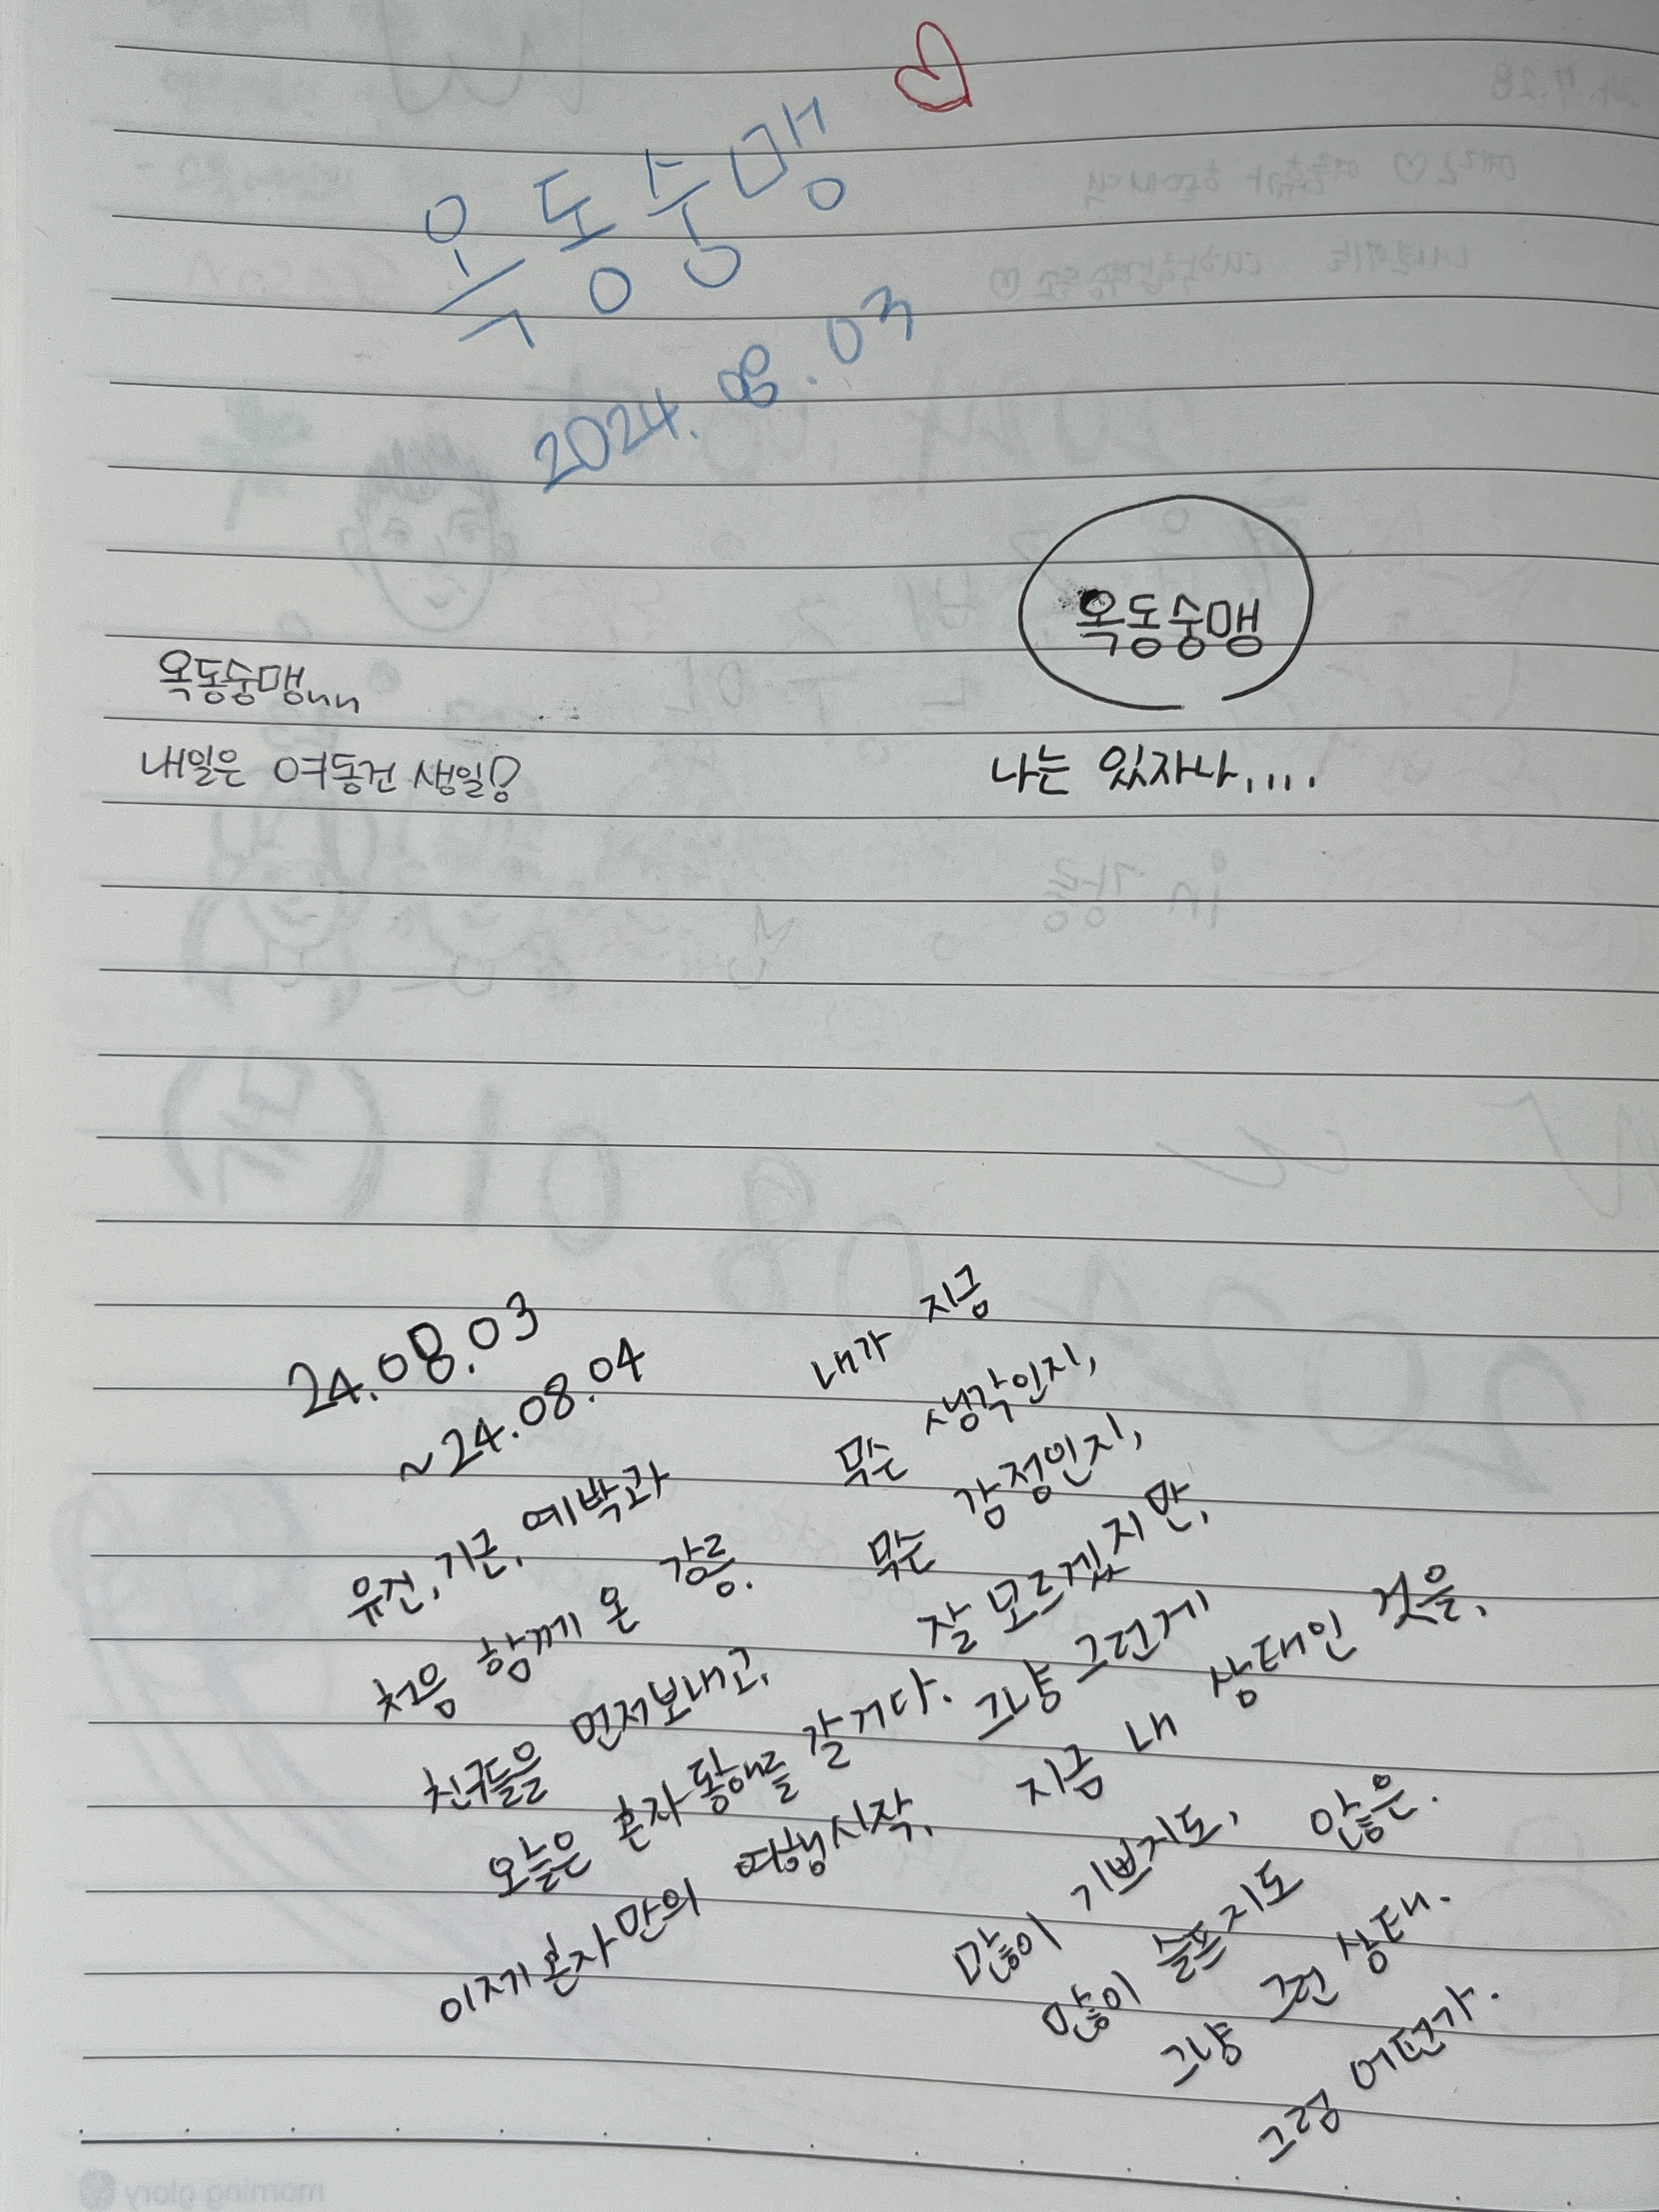 옥동숭맹
2024.08.03
옥동숭맹
나는 있자나....
옥동숭맹
내일은 여동건 생일!
24.08.03
~24.08.04
유건, 기근, 예박과
처음 함께 온 강릉.
친구들을 먼저보내고,
오늘은 혼자 동해를 갈거다.
이제 혼자만의 여행시작.
내가 지금
무슨 생각인지,
무슨 감정인지,
잘 모르겠지만,
그냥 그런게
지금 내 상태인 것을,
많이 기쁘지도,
많이 슬프지도 않은.
그냥 그런 상태.
그럼 어떤가.
morning glory